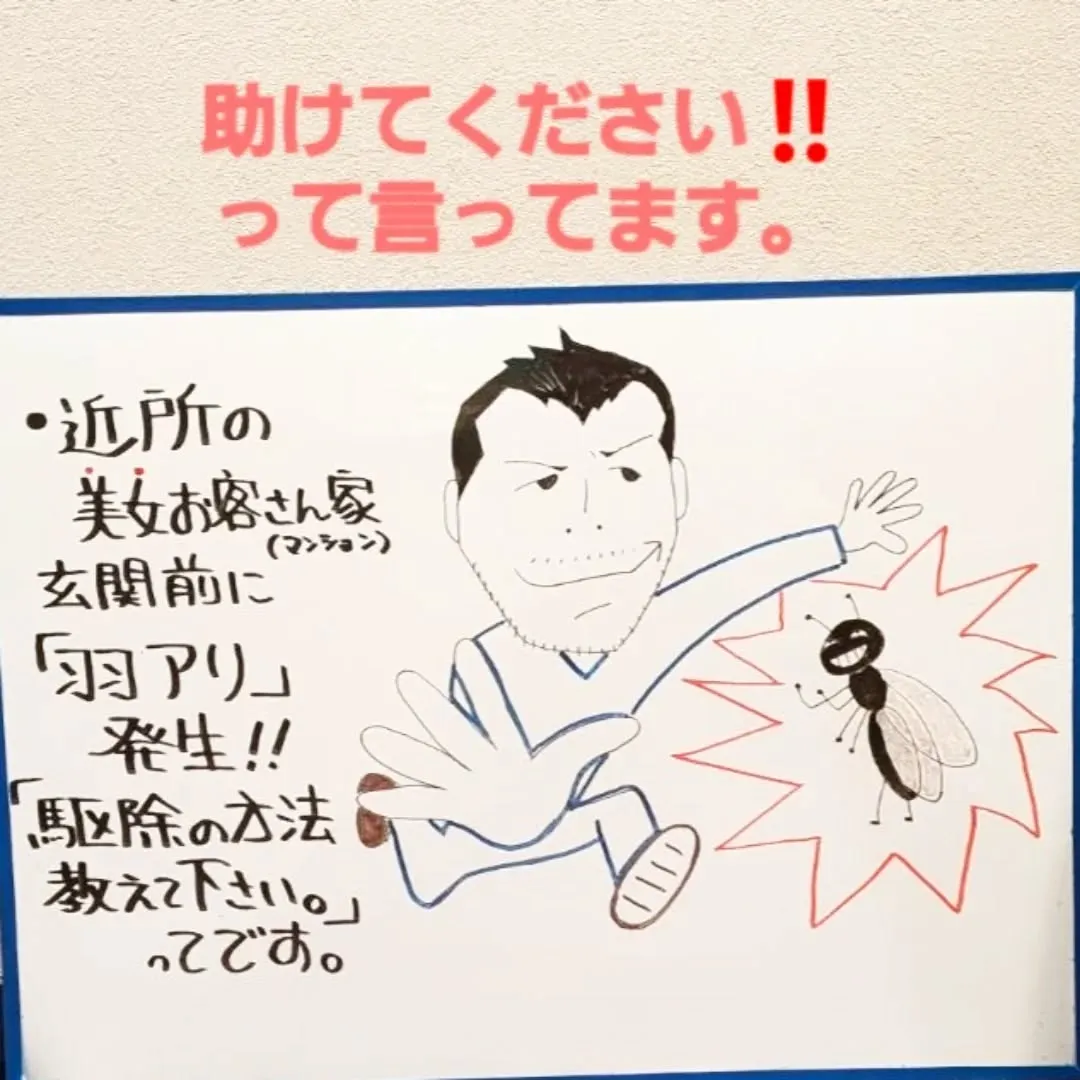 助けてください‼
って言ってます。
・近所の
美女お客さん家
(マンション)
玄関前に
「羽アリ」
発生!!
「駆除の方法
教えて下さい。」
ってです。